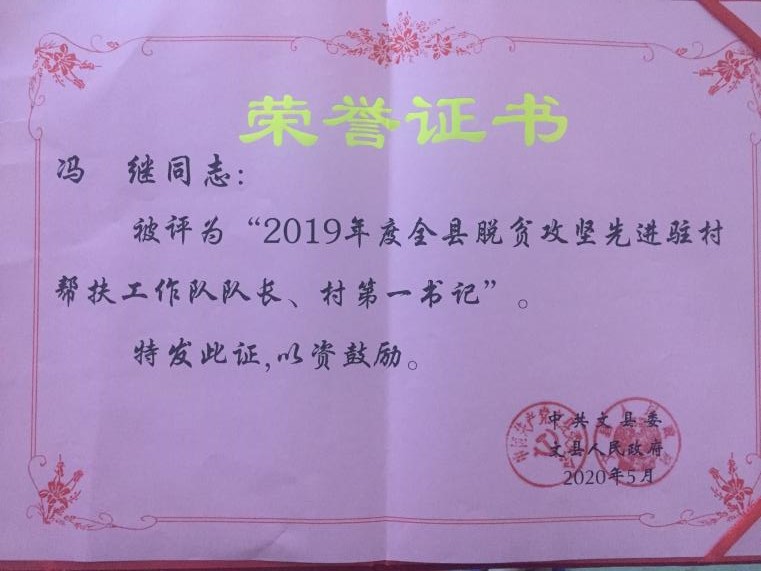 荣誉证书
冯　继同志：
被评为“2019年度全县脱贫攻坚先进驻村
帮扶工作队队长、村第一书记”。
特发此证，以资鼓励。
中共文县委
文县人民政府
2020年5月